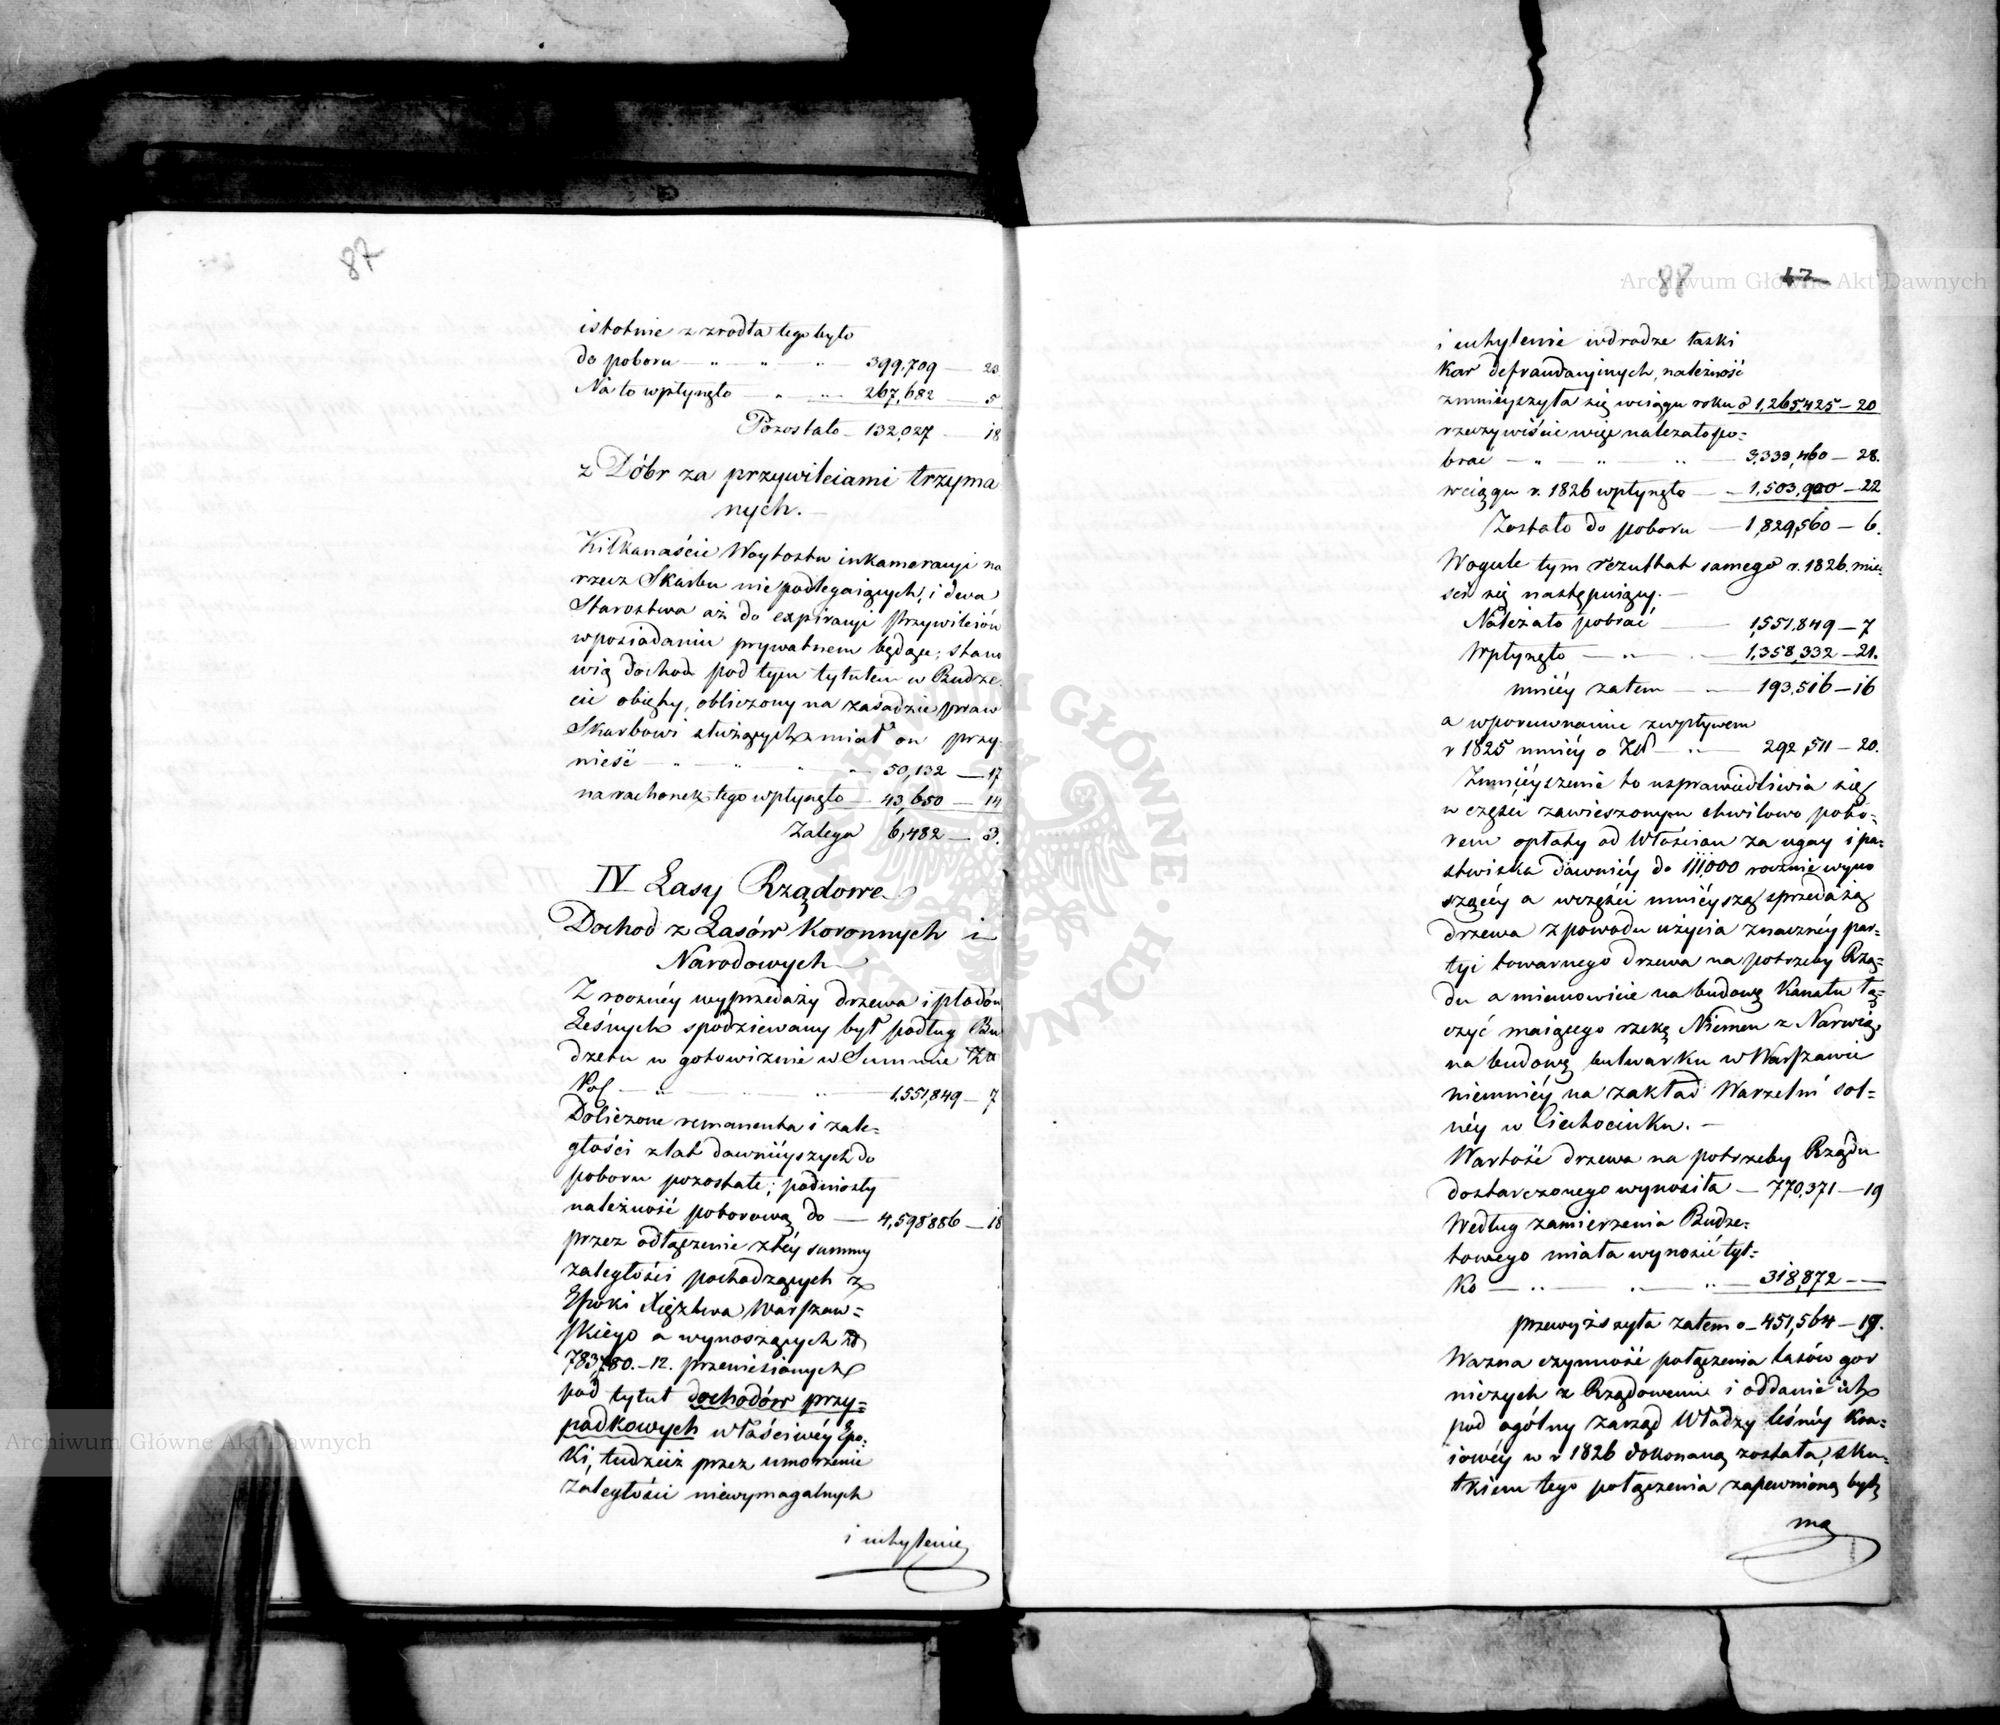 87
istotnie z zrodła tego było
do poboru — „ — „ — „ — 399,709 — 23
Na to wpłynęło — „ — „ — 267,682 — 5
Pozostało — 132,027 — 18
z Dóbr za przywileiami trzyma
nych. —
Kilkanaście Woytostw inkameracyi na
rzecz Skarbu nie podlegaiących, i dwa
Starostwa aż do expiracyi Przywileiów
w posiadaniu prywatnem będące; stano
wią dochod pod tym tytułem w Budże-
cie obięty, obliczony na zasadzie praw
Skarbowi służących miał on przy-
nieść — „ — „ — „ — „ — 50,132 — 17
na rachonek tego wpłynęło — 43,650 — 14
Zalega 6,482 — 3.
IV Lasy Rządowe
Dochod z Lasów Koronnych i
Narodowych —
Z roczney wyprzedaży drzewa i płodów
Leśnych spodziewany był podług Bu
dżetu w gotowiznie w Summie Zł
Pol — „ — „ — 1,551,849 — 7
Doliczone remanenta i zale=
głości z lat dawnieyszych do
poboru pozostałe; podniosły
należność poborową do — 4,598,886 — 18
przez odłączenie z téy summy
zaległości pochodzących z
Epoki Xięztwa Warszaw=
skiego a wynoszących zł
783,780. — 12. przeniesionych
pod tytuł dochodów przy=
padkowych właściwéy Epo-
ki, tudzież przez umorzenie
zaległości niewymagalnych
i uchylenie
88 47
i uchylenie w drodze łaski
kar defraudacyinych, należność
zmnieyszyła się w ciągu roku o 1,265,425 — 20
rzeczywiście więc należało po=
brać — „ — „ — „ — 3,333,460 — 28.
w ciągu r. 1826 wpłynęło — — 1,503,900 — 22
Zostało do poboru — 1,829,560 — 6.
Wogule tym rezultat samego r. 1826. mie-
ści się następuiący. —
Należało pobrać — 1,551,849 — 7
Wpłynęło — „ — . — 1,358,332 — 21.
mniéy zatem — — 193,516 — 16
a w porównaniu z wpływem
r 1825 mniéy o Zł — „ — 292,511 — 20.
Zmnieyszenie to usprawiedliwia się
w części zawieszonym chwilowo pobo=
rem opłaty od Włościan za ugay i pa=
stwiska dawniéy do 111,000 rocznie wyno
szącéy a w części mnieyszą sprzedażą
drzewa z powodu użycia znacznéy par=
tyi towarnego drzewa na potrzeby Rzą=
du a mianowicie na budowę Kanału łą=
czyć maiącego rzekę Niemen z Narwią,
na budowę bulwarku w Warszawie
niemniéy na zakład Warzelni sol=
néy w Ciechocinku. —
Wartość drzewa na potrzeby Rządu
dostarczonego wynosiła — 770,371 — 19
Według zamierzenia Budże=
towego miała wynosić tyl=
ko — „ — „ — „ — 318,872 —
przewyższyła zatem o — 451,564 — 19.
Ważna czynność połączenia lasów gor
niczych z Rządowemi i oddanie ich
pod ogólny zarząd Władzy leśnéy Kra=
iowéy w r 1826 dokonaną została, sku=
tkiem tego połączenia zapewnioną być
ma
Archiwum Główne Akt Dawnych
Archiwum Główne Akt Dawnych
ARCHIWUM GŁÓWNE AKT DAWNYCH